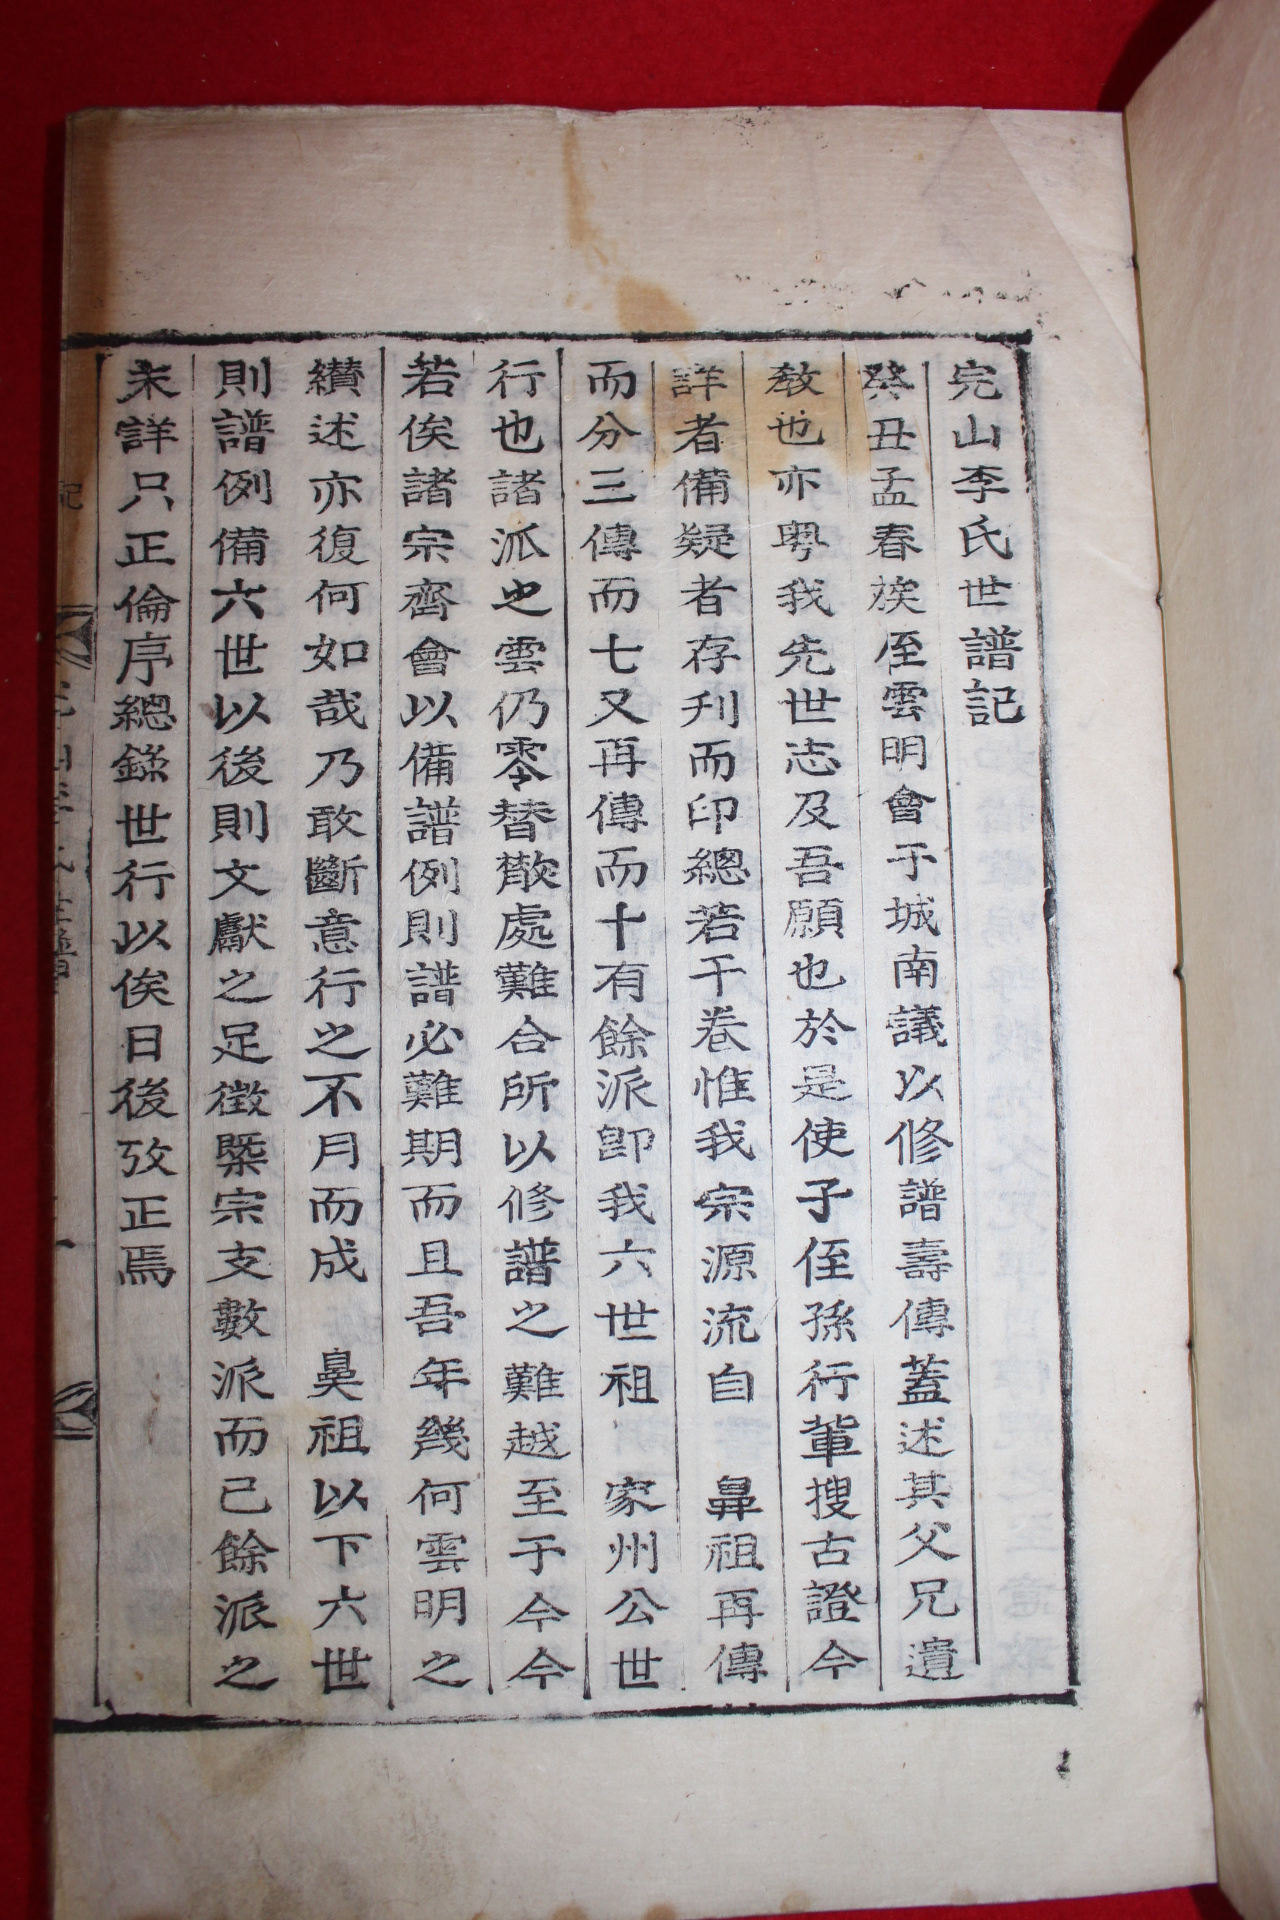 完山李氏世譜記
癸丑孟春族侄雲明會于城南議以修譜壽傳蓋述其父兄遺
敎也亦粤我先世志及吾願也於是使子侄孫行軰搜古證今
詳者備疑者存刋而印總若干卷惟我宗源流自 鼻祖再傳
而分三傳而七又再傳而十有餘派卽我六世祖 家州公世
行也諸派之雲仍零替散處難合所以修譜之難越至于今今
若俟諸宗齊會以備譜例則譜必難期而且吾年幾何雲明之
纉述亦復何如哉乃敢斷意行之不月而成 鼻祖以下六世
則譜例備六世以後則文獻之足徵槩宗支數派而已餘派之
未詳只正倫序總錄世行以俟日後攷正焉
記
完山李氏世譜
一